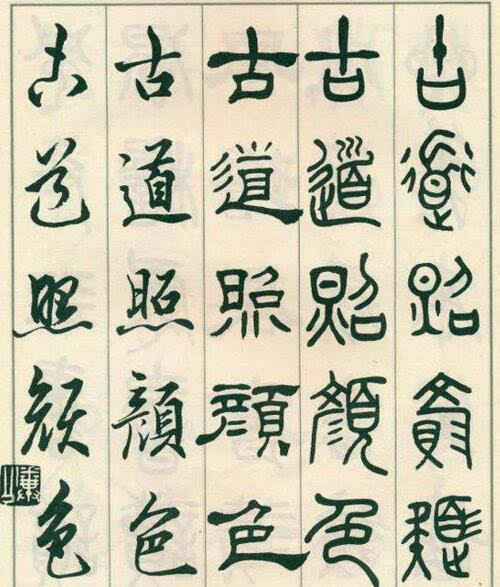 古道照顏色
古道照顏色
古道照顏色
古道照顏色
古道照顏色